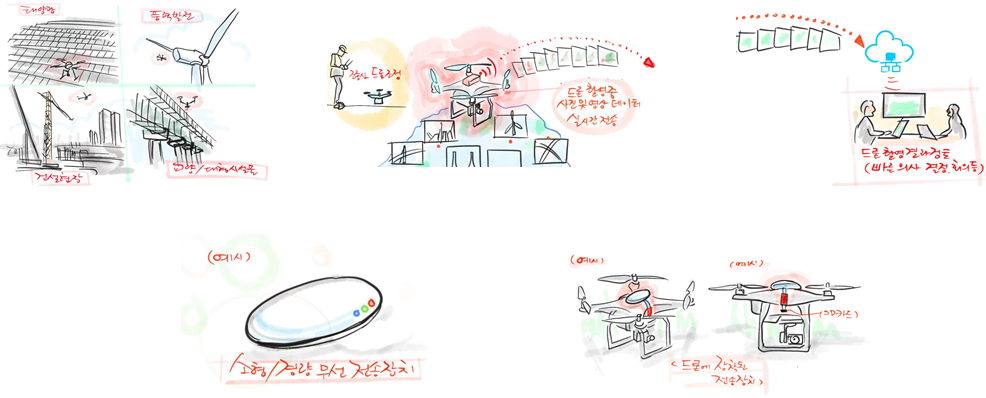 태양광
풍력발전
건설현장
교량/대형시설물
드론조정
드론 촬영중
사진 및 영상 데이터
실시간 전송
드론 촬영결과검토
(빠른 의사 결정, 회의등)
(예시)
소형/경량 무선 전송장치
(예시)
(예시)
(SD카드)
(드론에 장착된
전송장치)